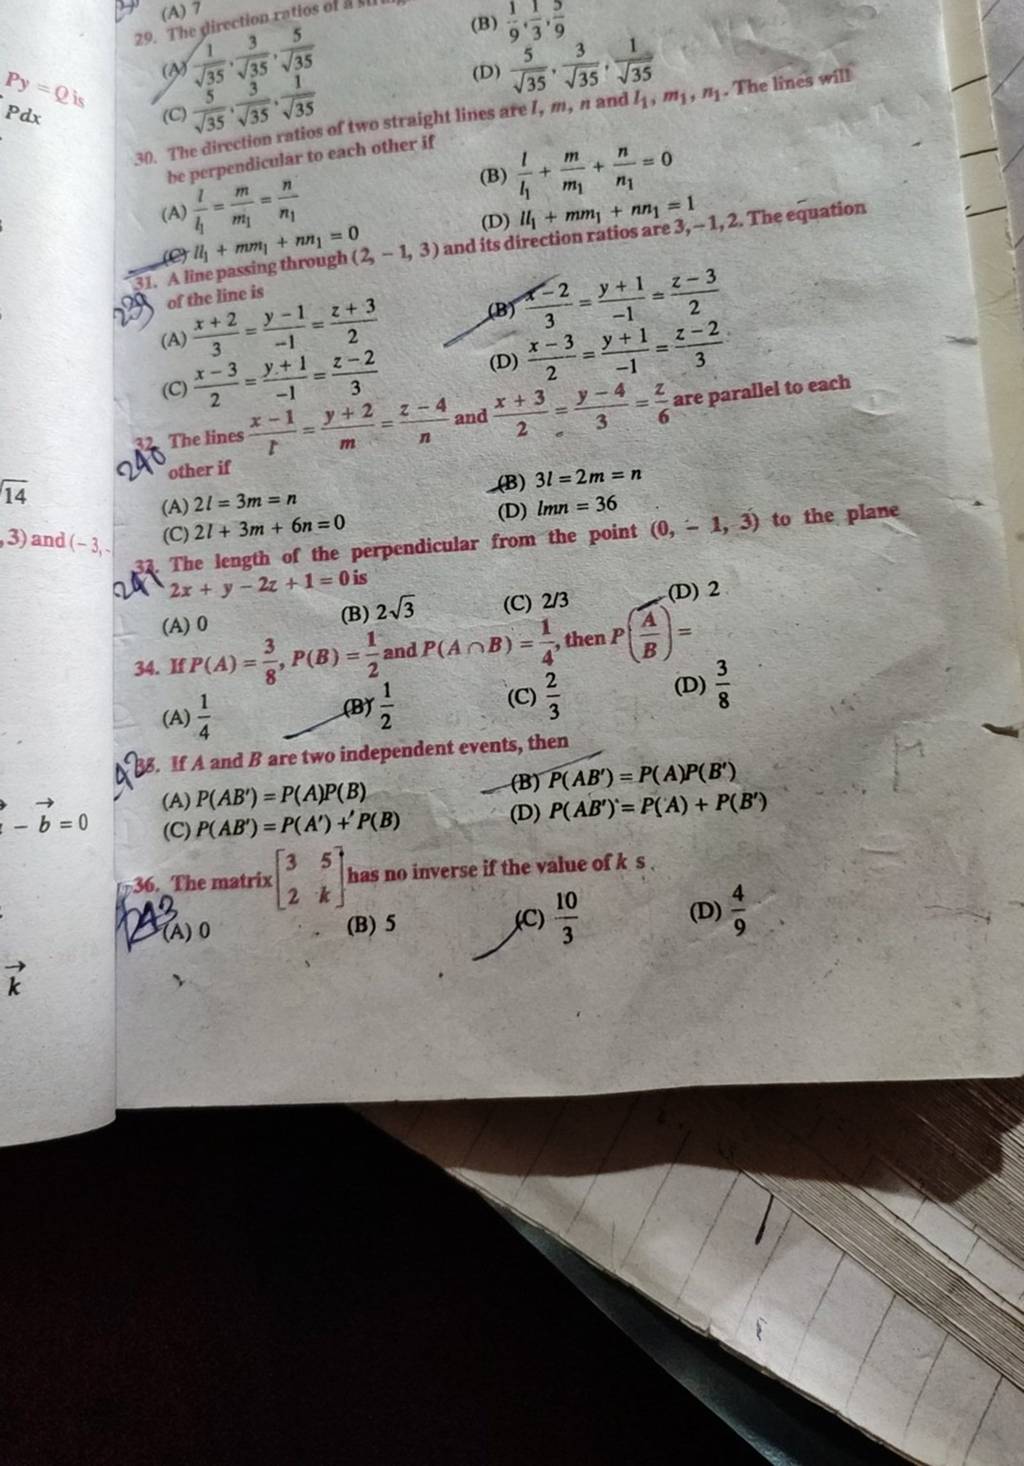 Py = Q is
Pdx
√14
, 3) and (– 3,
– b⃗ = 0
k⃗
(A) 7
29. The direction ratios of a
(A) 1/√35, 3/√35, 5/√35 (B) 1/9, 1/3, 5/9
(C) 5/√35, 3/√35, 1/√35 (D) 5/√35, 3/√35, 1/√35
30. The direction ratios of two straight lines are l, m, n and l₁, m₁, n₁. The lines will
be perpendicular to each other if
(A) l/l₁ = m/m₁ = n/n₁ (B) l/l₁ + m/m₁ + n/n₁ = 0
(C) ll₁ + mm₁ + nn₁ = 0 (D) ll₁ + mm₁ + nn₁ = 1
31. A line passing through (2, – 1, 3) and its direction ratios are 3, – 1, 2. The equation
239 of the line is
(A) x + 2/3 = y – 1/–1 = z + 3/2 (B) x – 2/3 = y + 1/–1 = z – 3/2
(C) x – 3/2 = y + 1/–1 = z – 2/3 (D) x – 3/2 = y + 1/–1 = z – 2/3
32. The lines x – 1/l = y + 2/m = z – 4/n and x + 3/2 = y – 4/3 = z/6 are parallel to each
240 other if
(A) 2l = 3m = n (B) 3l = 2m = n
(C) 2l + 3m + 6n = 0 (D) lmn = 36
33. The length of the perpendicular from the point (0, – 1, 3) to the plane
241 2x + y – 2z + 1 = 0 is
(A) 0 (B) 2√3 (C) 2/3 (D) 2
34. If P(A) = 3/8, P(B) = 1/2 and P(A ∩ B) = 1/4, then P(A/B) =
(A) 1/4 (B) 1/2 (C) 2/3 (D) 3/8
35. If A and B are two independent events, then
(A) P(AB′) = P(A)P(B) (B) P(AB′) = P(A)P(B′)
(C) P(AB′) = P(A′) + P(B) (D) P(AB′) = P(A) + P(B′)
36. The matrix [3 5 2 k] has no inverse if the value of k s.
243 (A) 0 (B) 5 (C) 10/3 (D) 4/9